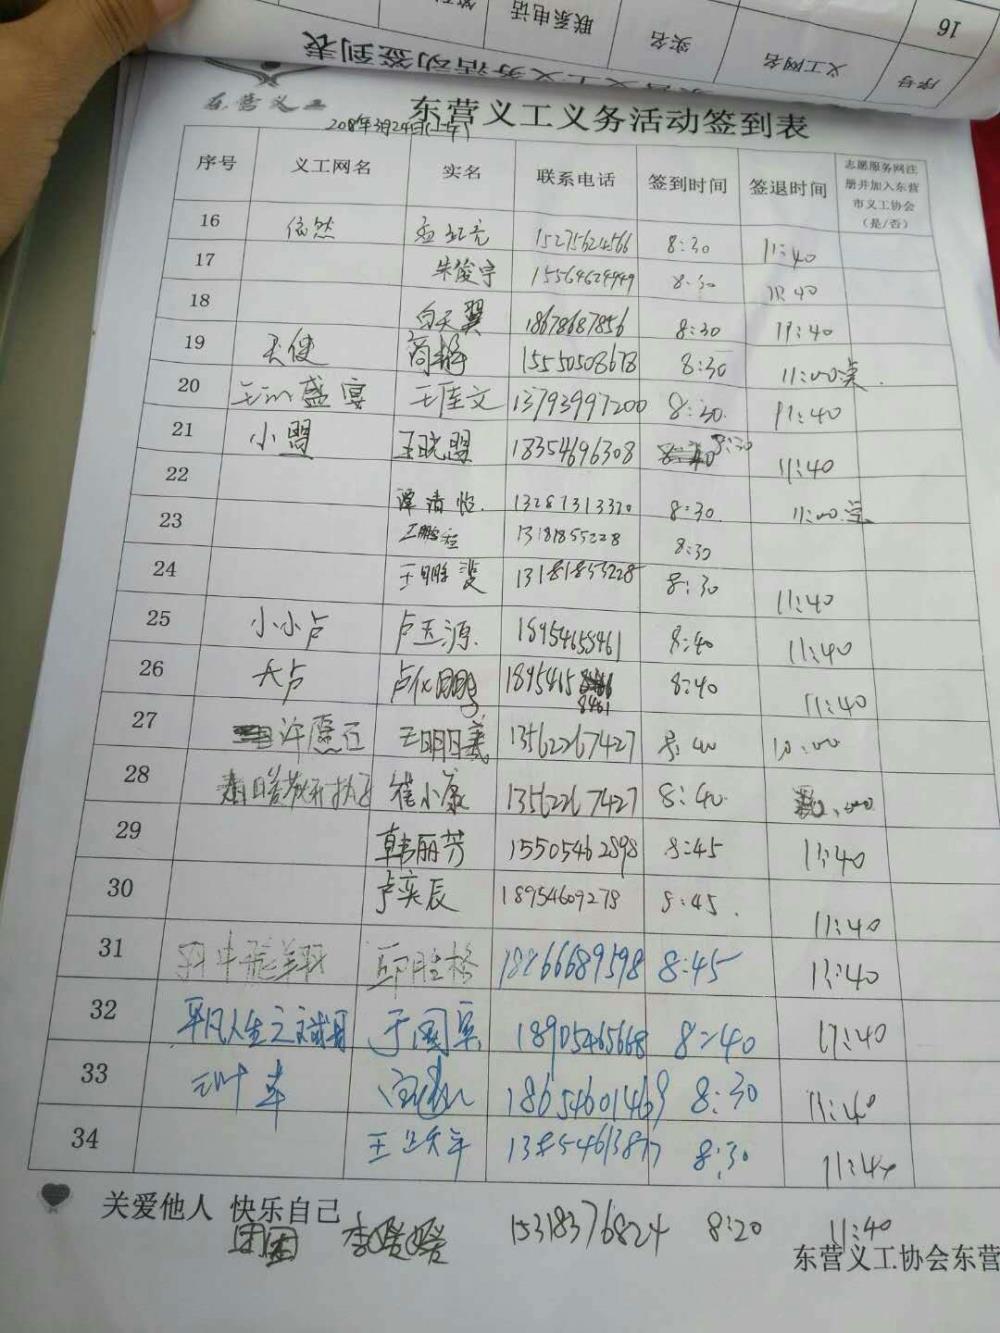 16
序号
义工网名
实名
联系电话
东营义工义务活动签到表
东营义工
东营义工义务活动签到表
序号 义工网名 实名 联系电话 签到时间 签退时间 志愿服务网注册并加入东营市义工协会（是/否）
16 依然 15275624566 8:30 11:40
17 朱俊宇 15564624949 8:30 11:40
18 白天翼 18678687856 8:30 11:40
19 天使 商静 15550508678 8:30 11:00
20 盛宴 王佳文 13793997200 8:30 11:40
21 小盟 王晓盟 18354696308 8:30 11:40
22 谭清怡 13287313320 8:30 11:00
23 王鹏程 13181855228 8:30
24 13181855228 8:30 11:40
25 小小卢 卢玉源 18954658461 8:40 11:40
26 大卢 18954658461 8:40 11:40
27 许愿豆 王明曦 13562267427 8:40 10:00
28 崔小康 13562267427 8:40
29 韩丽芳 15505462898 8:45 11:40
30 卢奕辰 18954609278 8:45 11:40
31 羽中飞翔 邱胜格 18266689598 8:45 11:40
32 平凡人生之 于国军 18905465668 8:40 11:40
33 18654601469 8:30 11:40
34 13854613877 8:30 11:40
关爱他人 快乐自己
团团 李媛媛 15318376824 8:20 11:40
东营义工协会东营